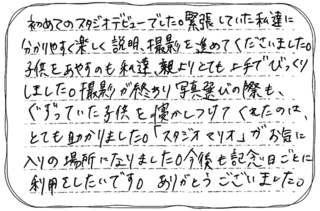 初めてのスタジオデビューでした。緊張していた私達に
分かりやすく楽しく説明、撮影を進めてくださいました。
子供をあやすのも私達、親よりとても上手でびっくり
しました。撮影が終わり写真選びの際も、
ぐずっていた子供を寝かしつけてくれたのは、
とても助かりました。「スタジオマリオ」がお気に
入りの場所になりました。今後も記念日ごとに
利用をしたいです。ありがとうございました。